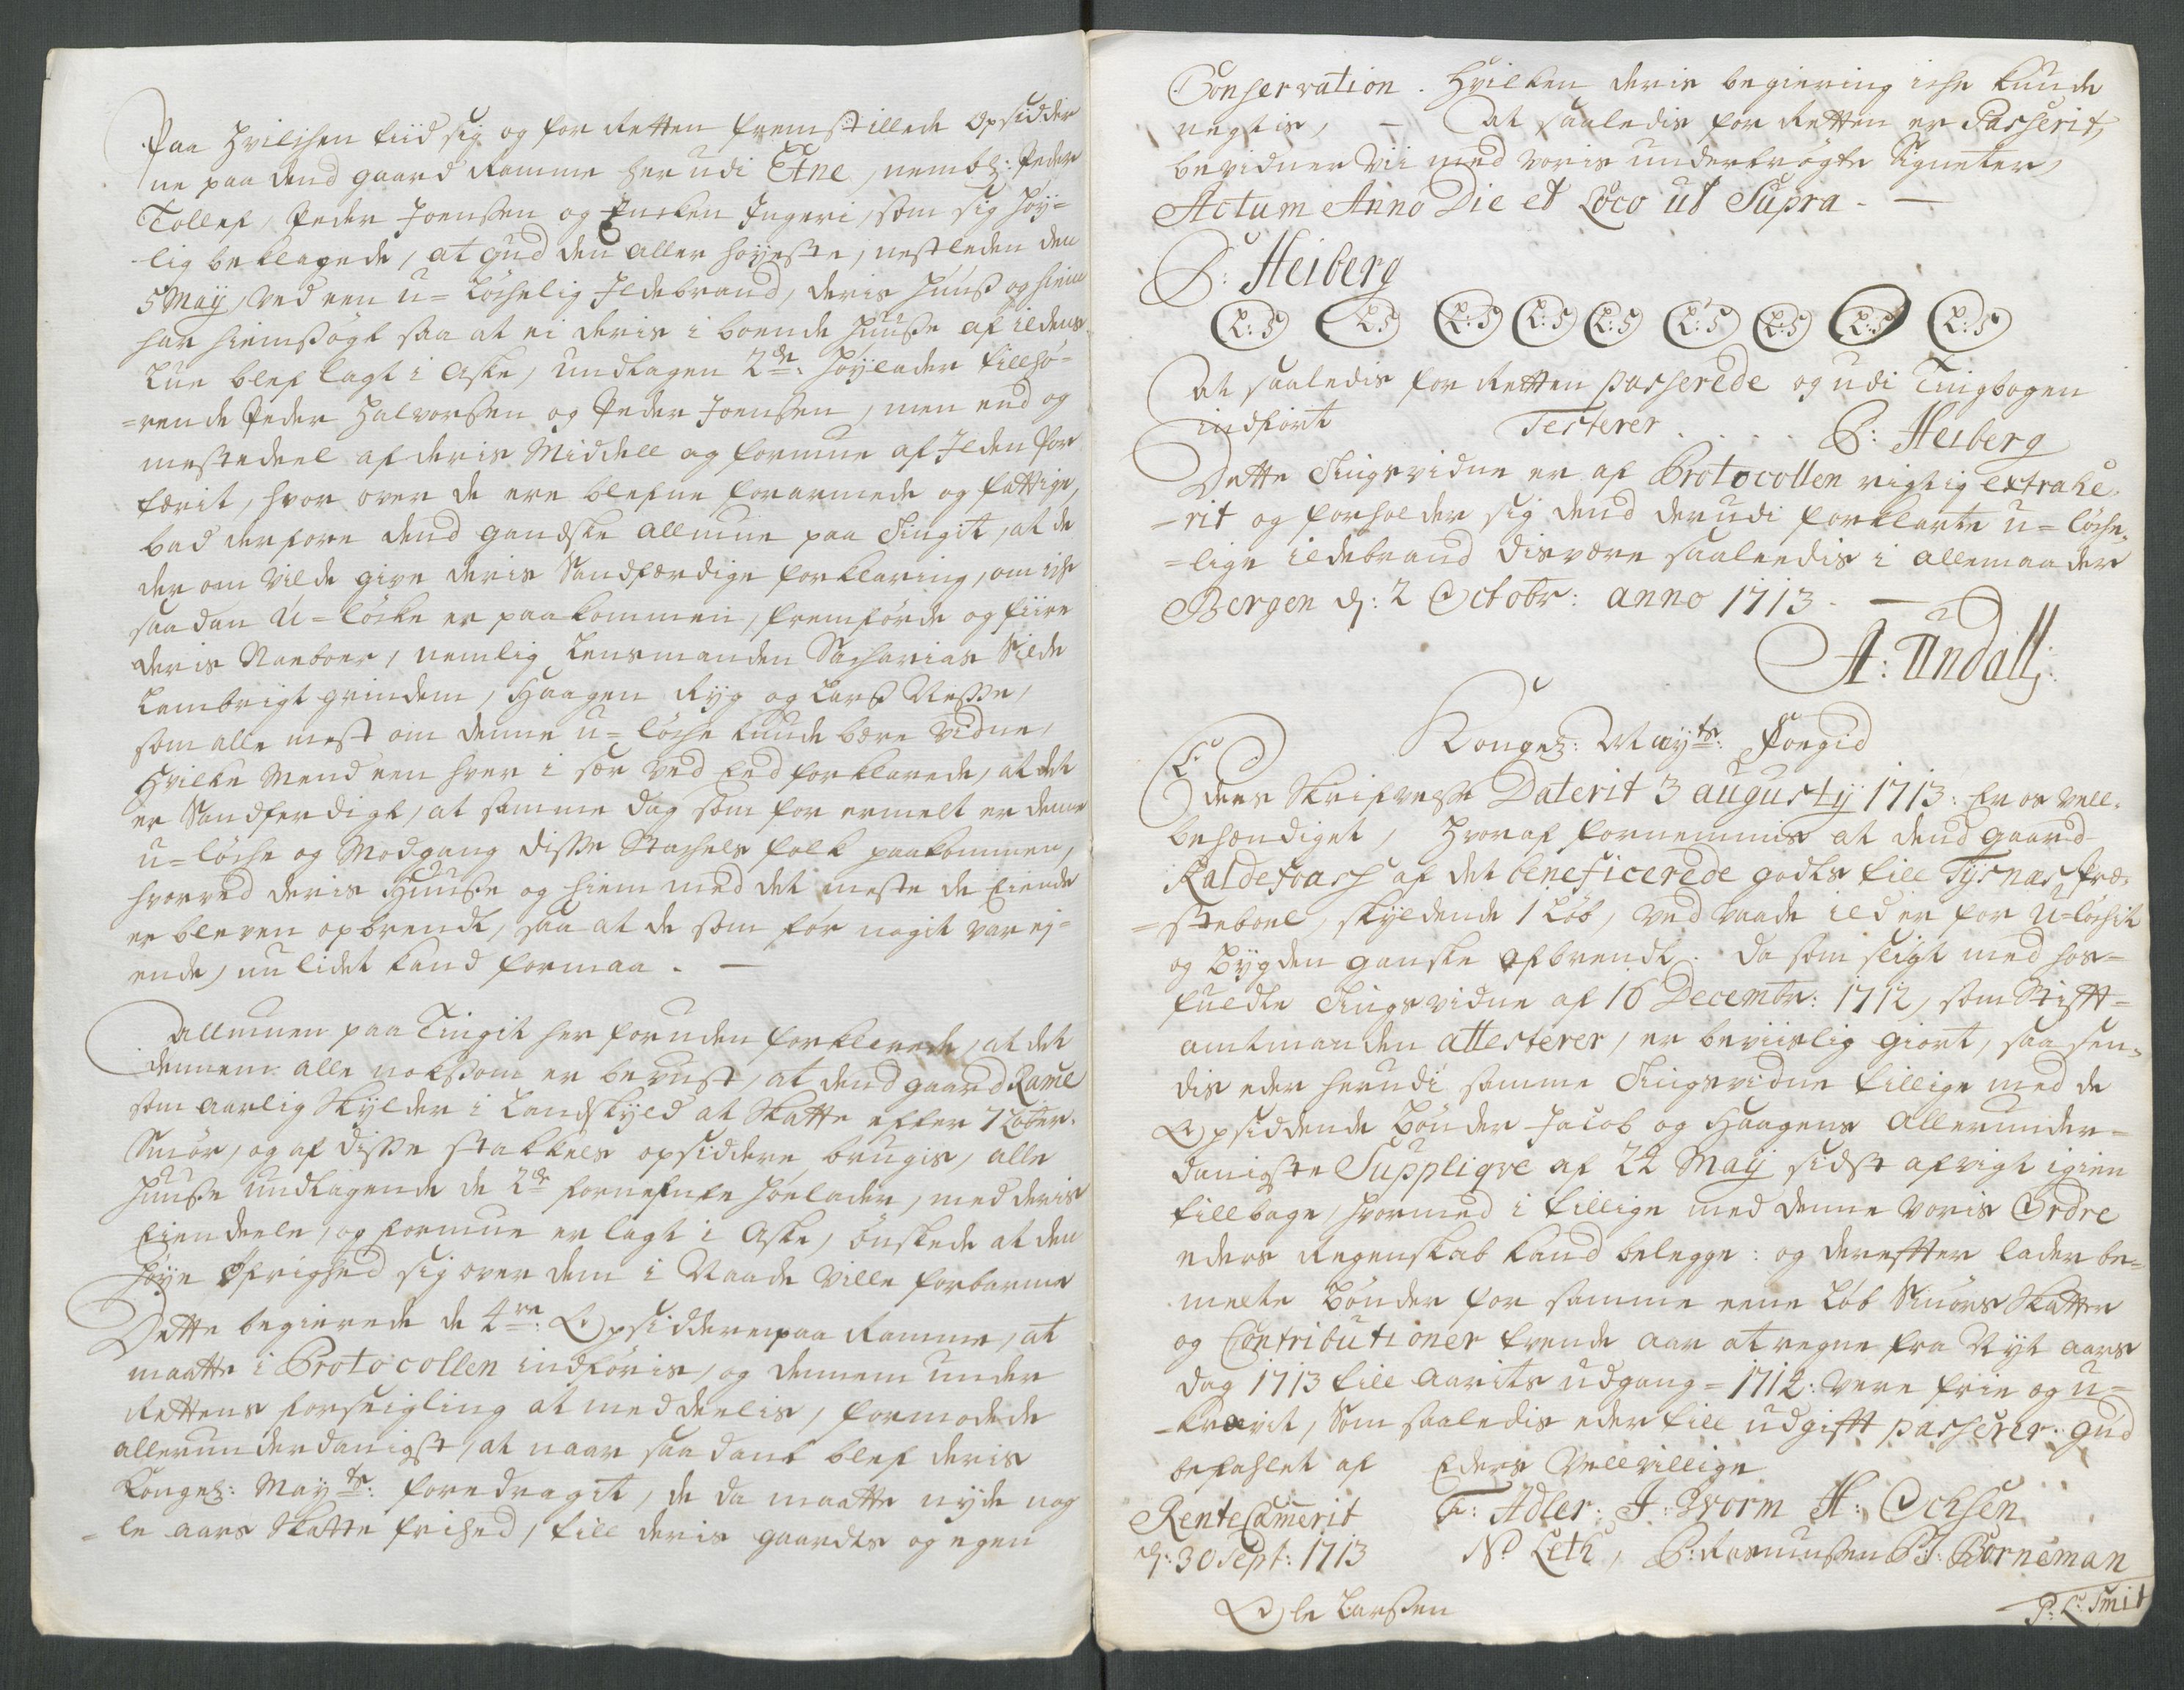 Paa hvilchen tiid sig og for Retten fremstillede Opsidder
ne paa dend gaard Ramme her udi Etne, nembl: Peder
Tollef, Peder Joenssen og Encken Ingeri, som sig Høy=
lig beklagede, at Gud den aller høyeste, nestleden den
5 Maÿ, ved een u=löchelig Ildebrand, deris Huuß og hiem
har hiemsögt saa at ei deris i boende Huuße af ildens
Lue blef lagt i Aske, undtagen 2de: Høÿlader tillhø=
=rende Peder Halvorssen og Peder Joenssen, men end og
mestedeel af deris Middell og formue af Ilden for
tærit, hvor over de ere blefne forarmede og fattige,
bad derfore dend gandske Allmue paa Tingit, at de
der om vilde give deris Sandfærdige forklaring, om iche
saadan U=löcke er paakommen, fremførde og fiire
deris Naeboer, nemlig Lensmanden Sacharias Silde
Lambrigt grindem, Haagen Ryg og Lars Neße,
som alle mest om denne u=löche kunde bære vidne,
Hvilke Mend een hver i sær ved Eed forklarede, at det
er Sandferdigt, at samme dag som for ermelt er denne
u=löche og Modgang disse Stachels folk paakommen,
hvorved deris Huuße og hiem med det meste de Eiende
er bleven opbrendt, saa at de som før nogit var ej=
ende, nu lidet kand formaa. —
Allmuen paa Tingit her foruden forklarede, at det
dennem alle noksom er bevust, at dend gaard Rame
som aarlig Skylder i Landskyld at Skatte efter 7 Løber
Smör, og af disse stakkels opsiddere brugis, alle
Huuße undtagende de 2de fornefnte Høelader, med deris
Eiendeele, og formue er lagt i Aske, önskede at den
Høye Øfrighed sig over dem i Naade ville forbarme
Dette begierede de 4re: Opsiddere paa Ramme, at
maatte i Protocollen indføris, og dennem under
Rettens forseigling at meddeelis, formodede
allerunderdanigst, at naar saadant blef deris
Kongel: Mayts: foredragit, de da maatte nyde nog
=le aars Skatte frihed, till deris gaards og egen
Conservation. Hvilken deris begiering iche kunde
negtis, — At saaledis for Retten er Passerit,
bevidner vii med voris undertrögte Signeter,
Actum Anno Die et Loco ut Supra. —
C: Heiberg
L:S L:S L:S L:S L:S L:S L:S L:S L:S
At saaledis for Retten passerede og udi Tingbogen
indført Testerer . . . C: Heiberg
Dette Tingsvidne er af Protocollen rigtig extrahe=
=rit og forholder sig dend derudi forklarte u=löche=
=lige ildebrand disvære saaleedis i allemaader
Bergen d: 2 Octobr: anno 1713. —
A: Undall:
Kongel: Mayts: Foegid
Eders Skrifvelse Daterit 3 augusty 1713: Er os vell.
behændiget, Hvoraf fornemmis at dend gaard
Kaldefoass af det beneficerede godts till Tysnes Præ=
=steboel, skyldende 1 Løb, ved vaade ild er for U=löchit
og bygden ganske afbrendt. Da som sligt med hos=
fuldte Tingsvidne af 16 Decembr: 1712, som Stifft=
amtmanden attesterer, er beviislig giort, saa sen=
dis eder herudi samme Tingsvidne tillige med de
Opsiddende bønder Jacob og Haagens Allerunder=
danigste Suppliqve af 22 Maÿ sidst afvigt igien
tillbage, hvormed i tillige med denne voris Ordre
eders Regenskab kand belegge: og derefter lader be=
meelte bönder for samme eene Løb Smörs Skatter
og Contributioner trende aar at regne fra Nyt aars
dag 1713 till aarits udgang = 1712. vere frie og u=
=krævit, Som saaledis eder till udgift passerer. Gud
befahlet af Eders Vellvillige
RenteCamerit F: Adler: J: Worm H: Ochsen
d: 30 Sept: 1713 N: Leth, C: Rasmussen C: J: Borneman
Ole Larssen P: L: Smit